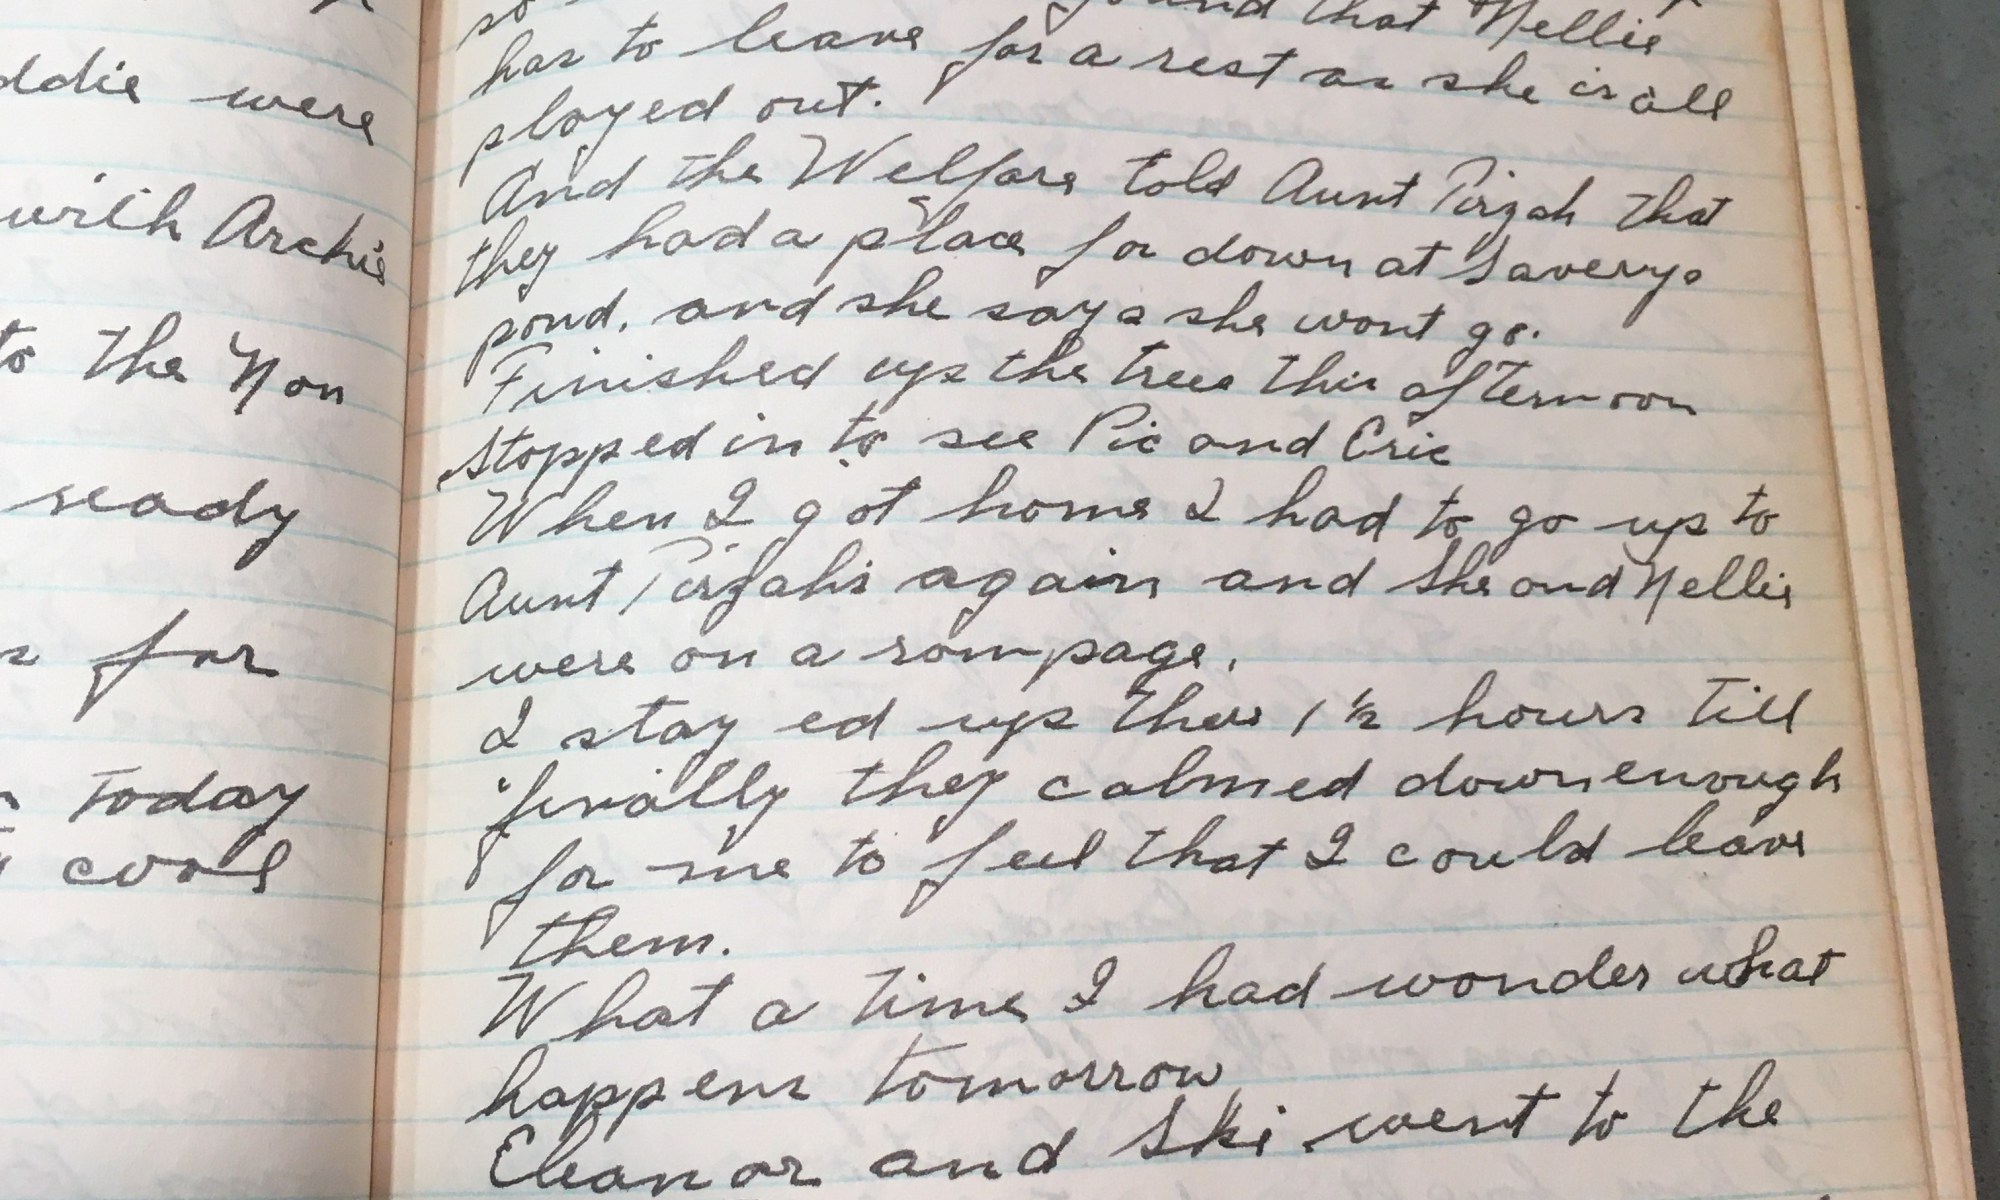 ddie were
with Archie
to the Non
ready
for
Today
cool
so
found that Nellie
has to leave for a rest as she is all
played out.
And the Welfare told Aunt Pirzah that
they had a place for down at Saverys
pond. and she says she wont go.
Finished up the trees this afternoon
stopped in to see Pic and Eric
When I got home I had to go up to
Aunt Pirzah's again and she and Nellie
were on a rompage.
I stay ed up there 1 ½ hours Till
finally they calmed down enough
for me to feel that I could leave
them.
What a Time I had wonder what
happens tomorrow
Eleanor and Ski went to the